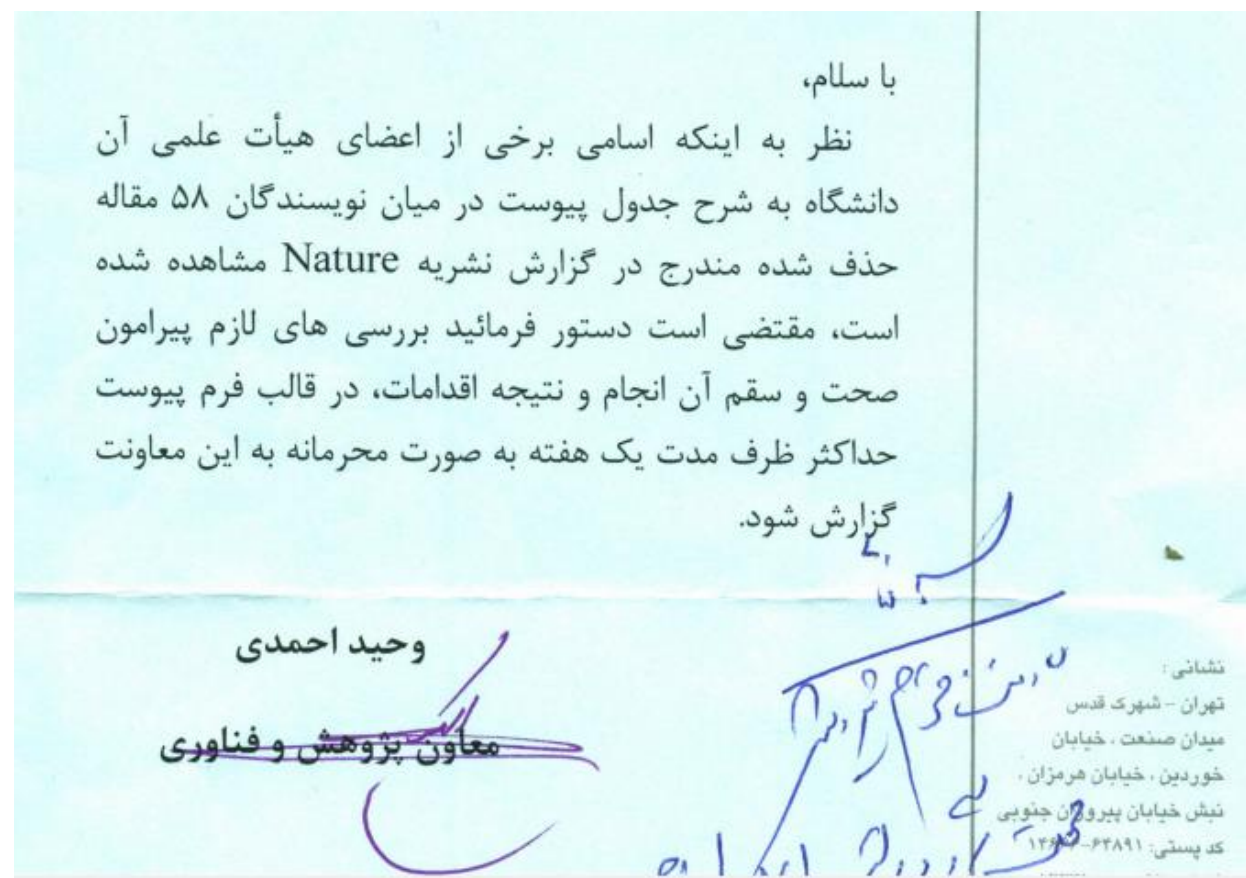 با سلام،
نظر به اینکه اسامی برخی از اعضای هیأت علمی آن
دانشگاه به شرح جدول پیوست در میان نویسندگان ۵۸ مقاله
حذف شده مندرج در گزارش نشریه Nature مشاهده شده
است، مقتضی است دستور فرمائید بررسی های لازم پیرامون
صحت و سقم آن انجام و نتیجه اقدامات، در قالب فرم پیوست
حداکثر ظرف مدت یک هفته به صورت محرمانه به این معاونت
گزارش شود.
وحید احمدی
معاون پژوهش و فناوری
نشانی :
تهران - شهرک قدس
میدان صنعت ، خیابان
خوردین ، خیابان هرمزان ،
نبش خیابان پیروزان جنوبی
کد پستی: